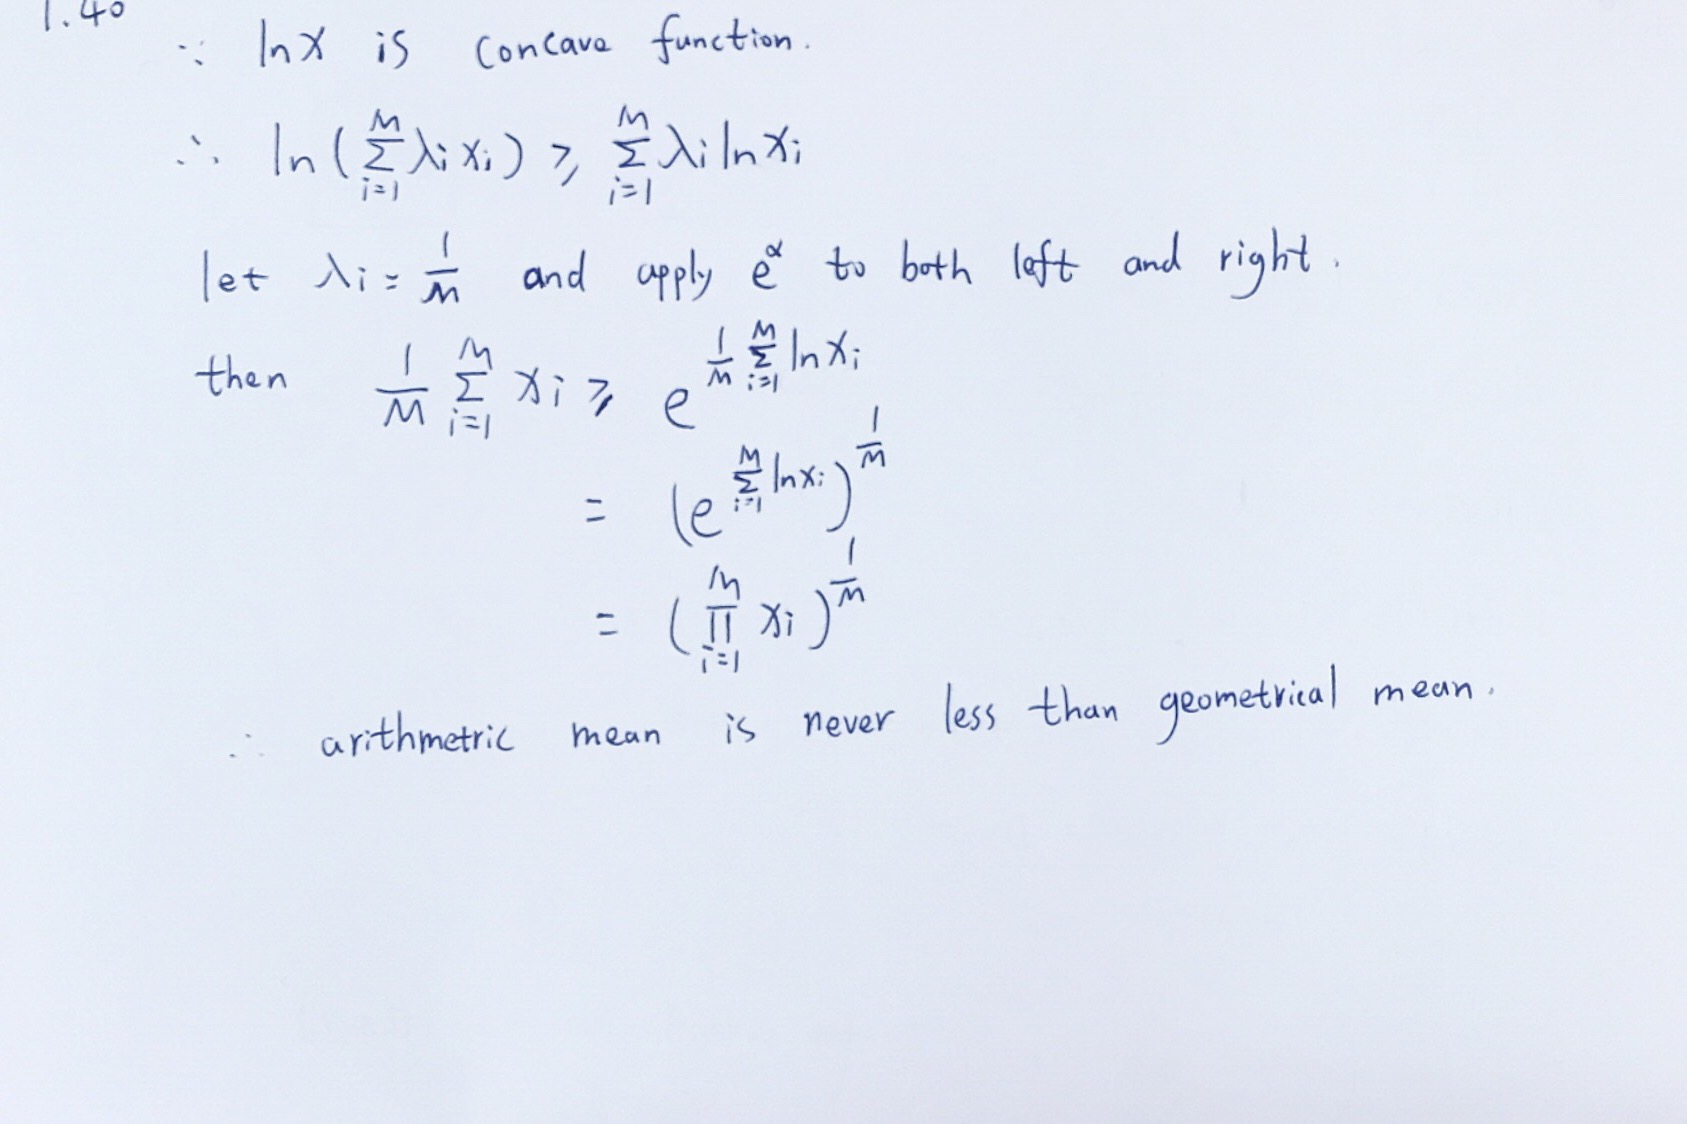 1.40
∵ lnx is concave function.
∴ ln(∑_{i=1}^{M} λi xi) ⩾ ∑_{i=1}^{M} λi ln xi
let λi = 1/M and apply e^α to both left and right.
then 1/M ∑_{i=1}^{M} xi ⩾ e^{1/M ∑_{i=1}^{M} ln xi}
= (e^{∑_{i=1}^{M} ln xi})^{1/M}
= (∏_{i=1}^{M} xi)^{1/M}
∴ arithmetric mean is never less than geometrical mean.